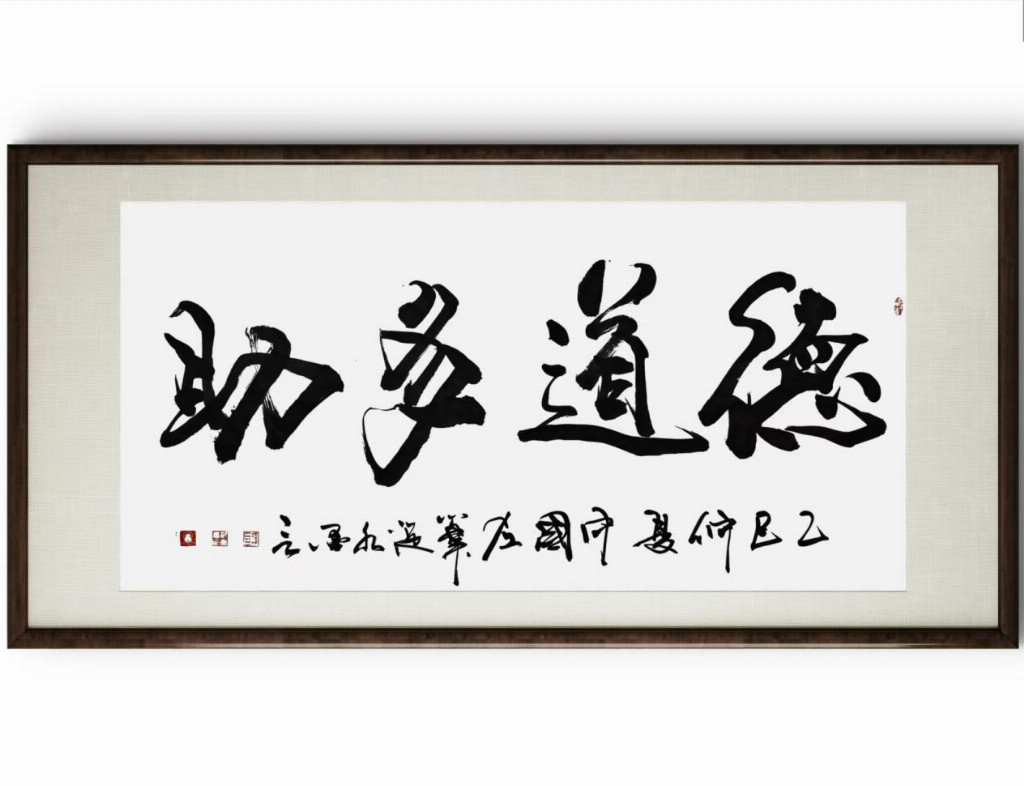 德道多助
乙巳仲夏中國左筆